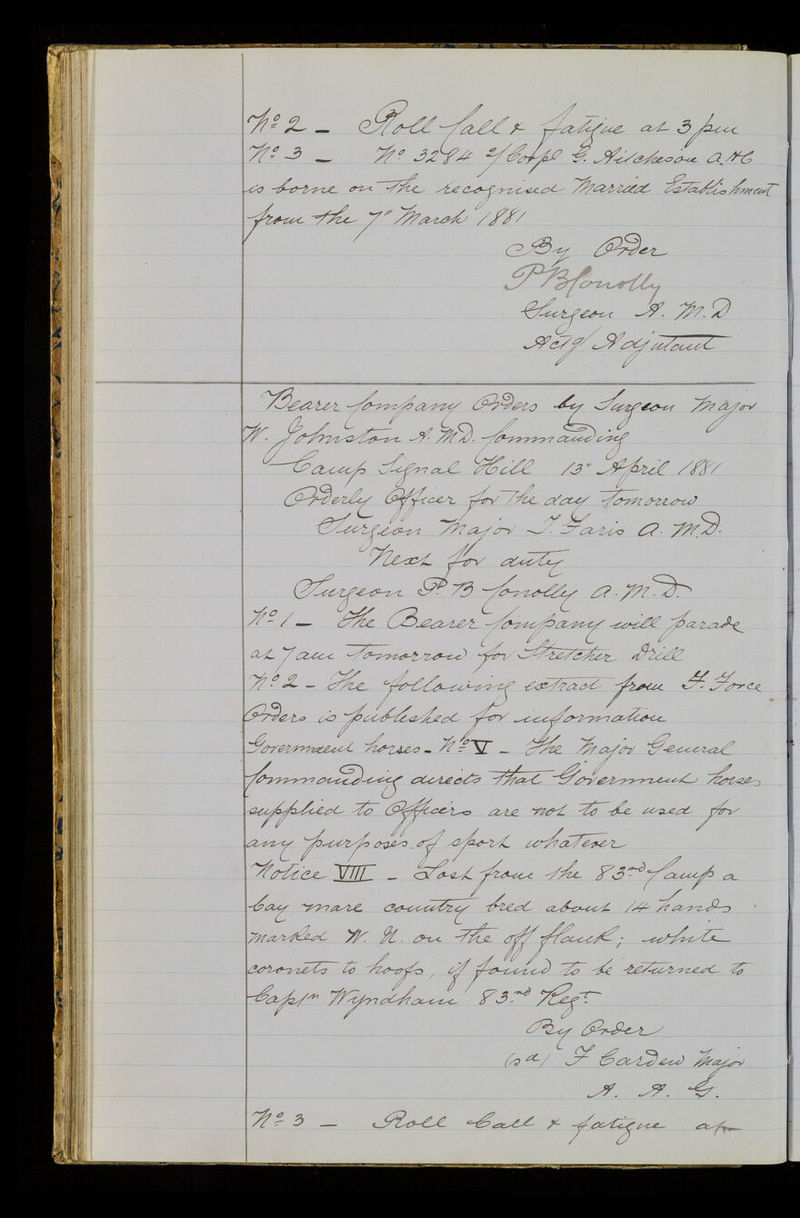 No 2 - Roll Call & fatigue at 3 pm
No 3 - No 3294 2/Corpl G. Aitcheson A.H.C
is borne on the recognised Married Establishment
from the 7" March 1881
By Order
P B Conolly
Surgeon A. M. D
Actg Adjutant
Bearer Company Orders by Surgeon Major
W. Johnston A. M. D. Commanding
Camp Signal Hill 13" April 1881
Orderly Officer for the day tomorrow
Surgeon Major T. Faris A. M. D.
Next for duty
Surgeon P. B Conolly A. M. D.
No 1 - The Bearer Company will parade
at 7 am tomorrow for Stretcher Drill
No 2 - The following extract from F. Force
Orders is published for information
Government horses - No V - The Major General
Commanding directs that Government horses
supplied to Officers are not to be used for
any purposes of sport whatever
Notice VIII - Lost from the 83rd Camp a
bay mare country bred about 14 hands
marked W. N. on the off flank; white
coronets to hoofs, if found to be returned to
Captn Wyndham 83rd Regt
By Order
(sd) F Carden Major
A. A. G.
No 3 - Roll Call & fatigue at